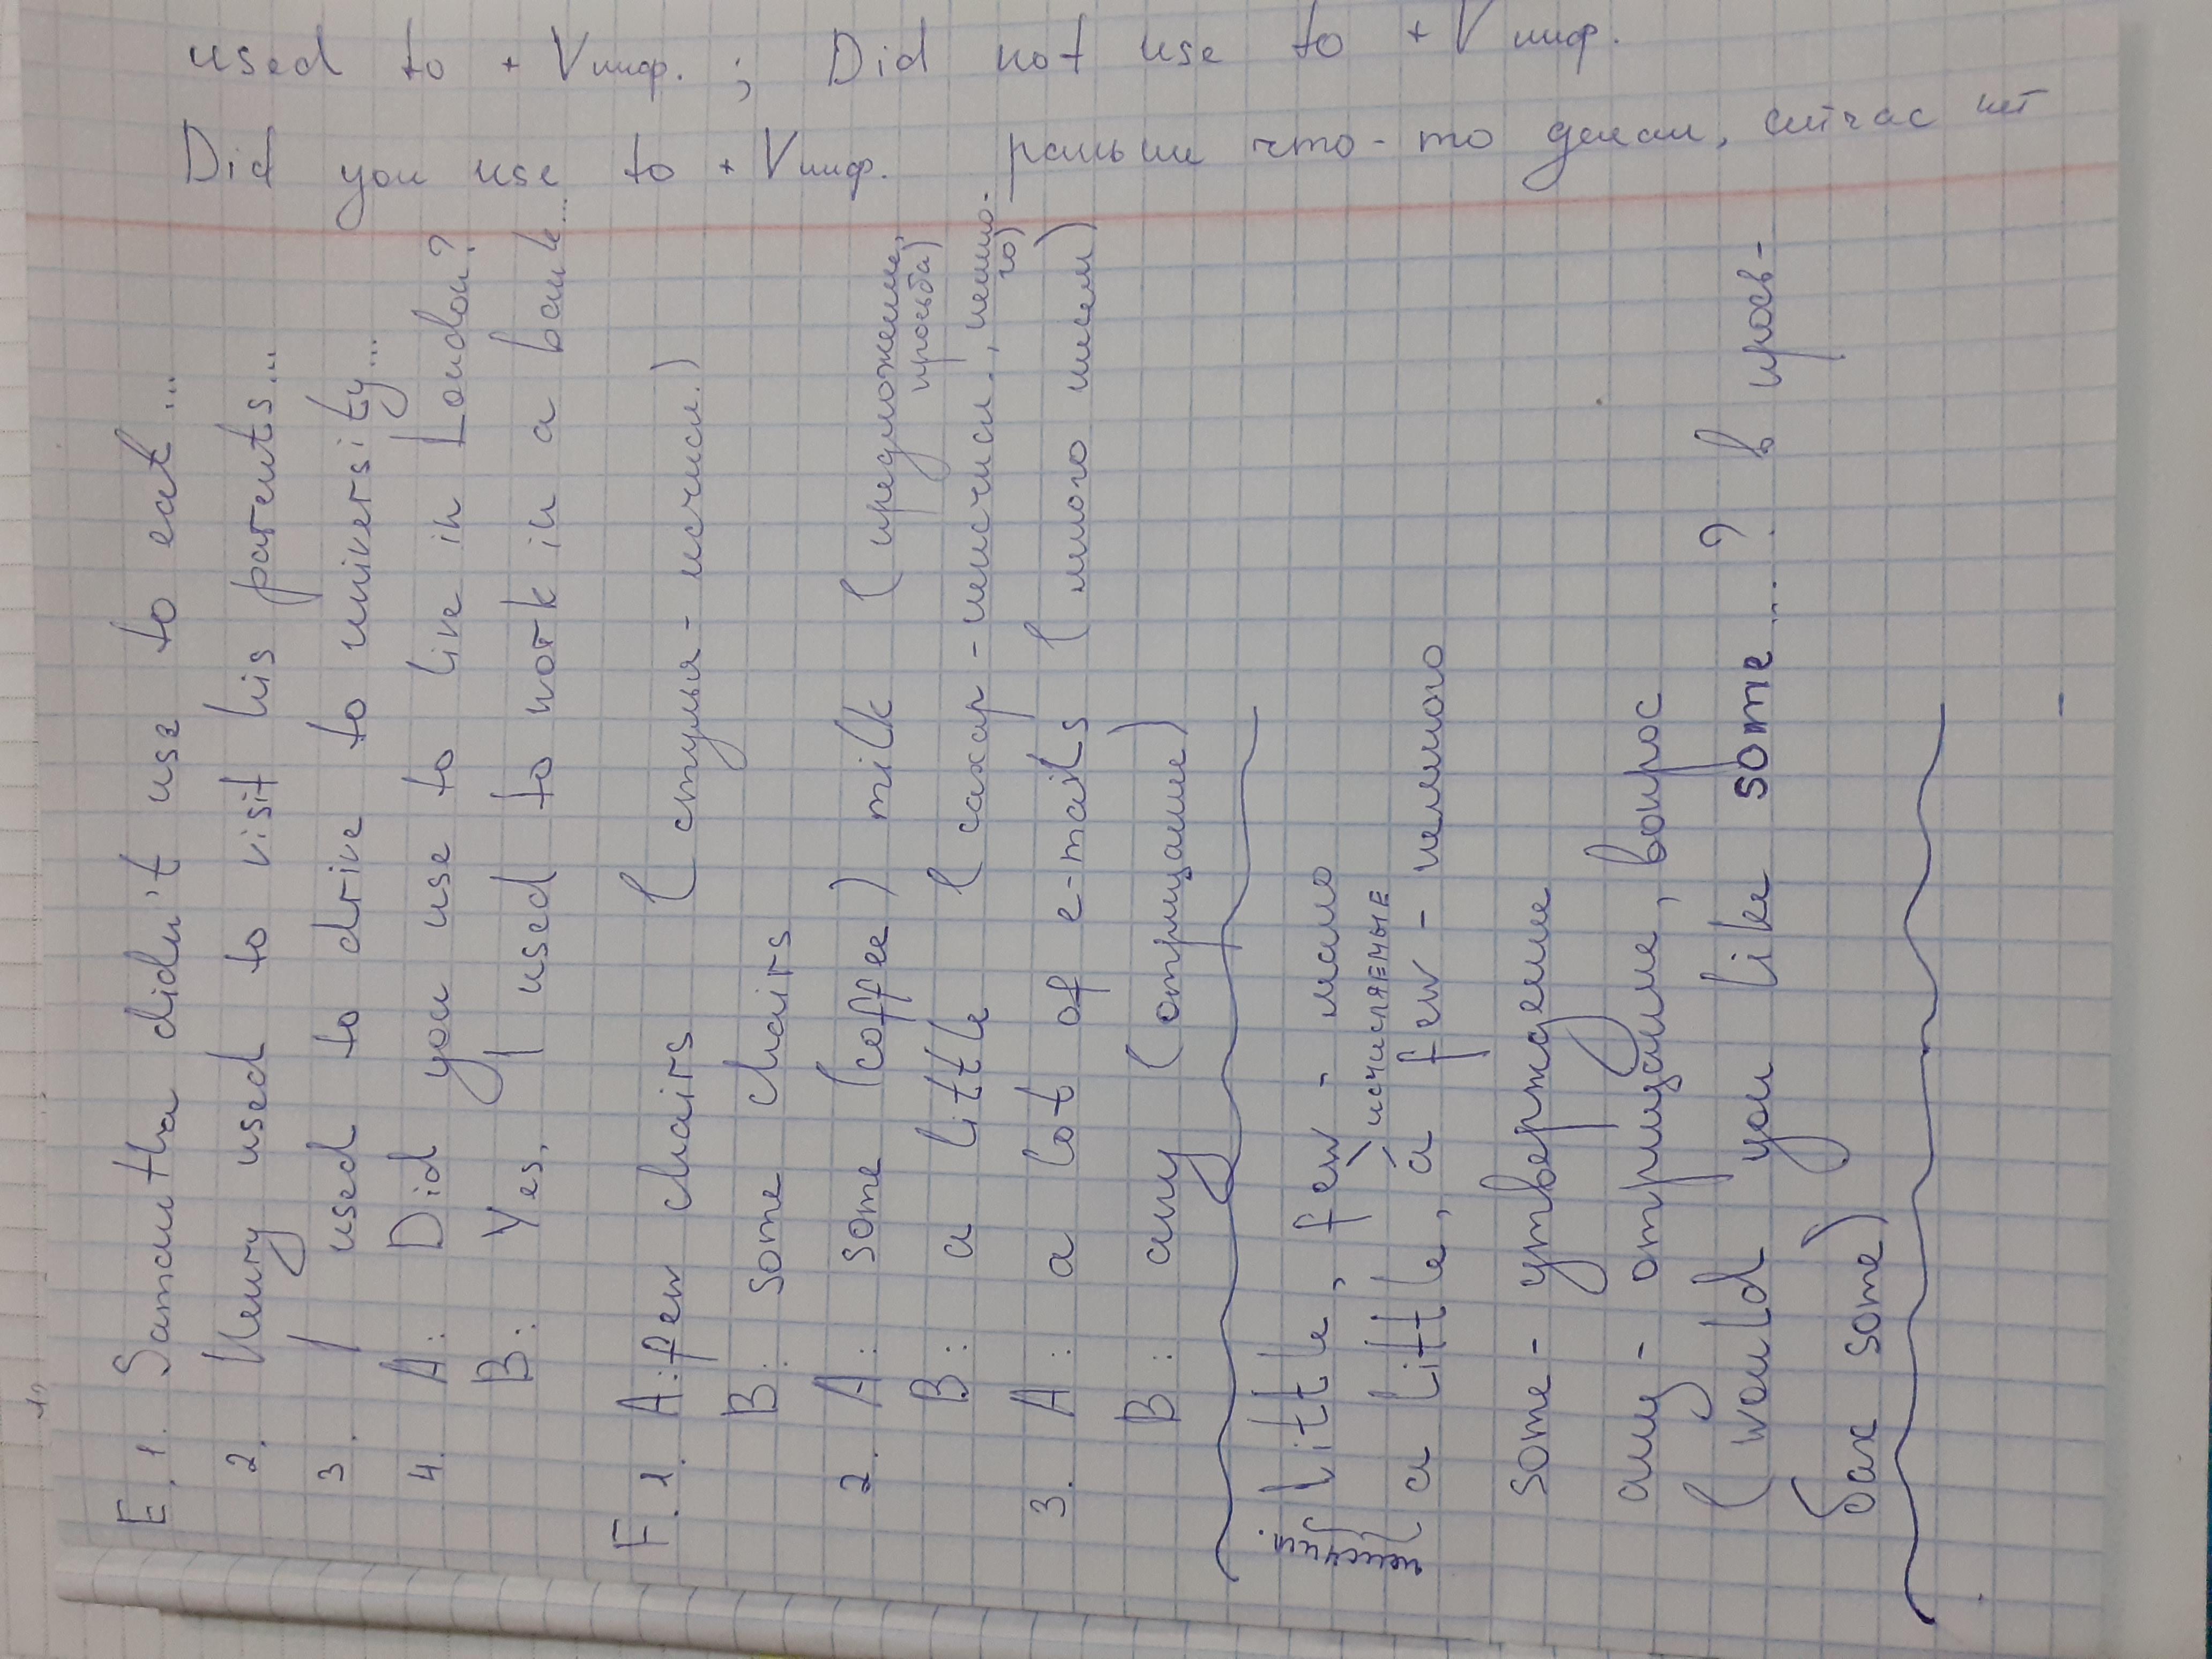 E. 1. Samantha didn't use to eat...
2. Henry used to visit his parents...
3. I used to drive to university...
4. A: Did you use to live in London?
B: Yes, I used to work in a bank...
F. 1. A: few chairs ( стулья - исчисл.)
B: some chairs
2. A: some (coffee) milk ( предложение, просьба)
B: a little ( сахар - неисчисл., немного)
3. A: a lot of e-mails ( много писем)
B: any ( отрицание)
little, few - мало
исчисляемые
a little, a few - немного
неисчисл.
some - утверждение
any - отрицание, вопрос
( would you like some...? в прось-
бах some)
used to + V инф. ; Did not use to + V инф.
Did you use to + V инф. раньше что-то делал, сейчас нет